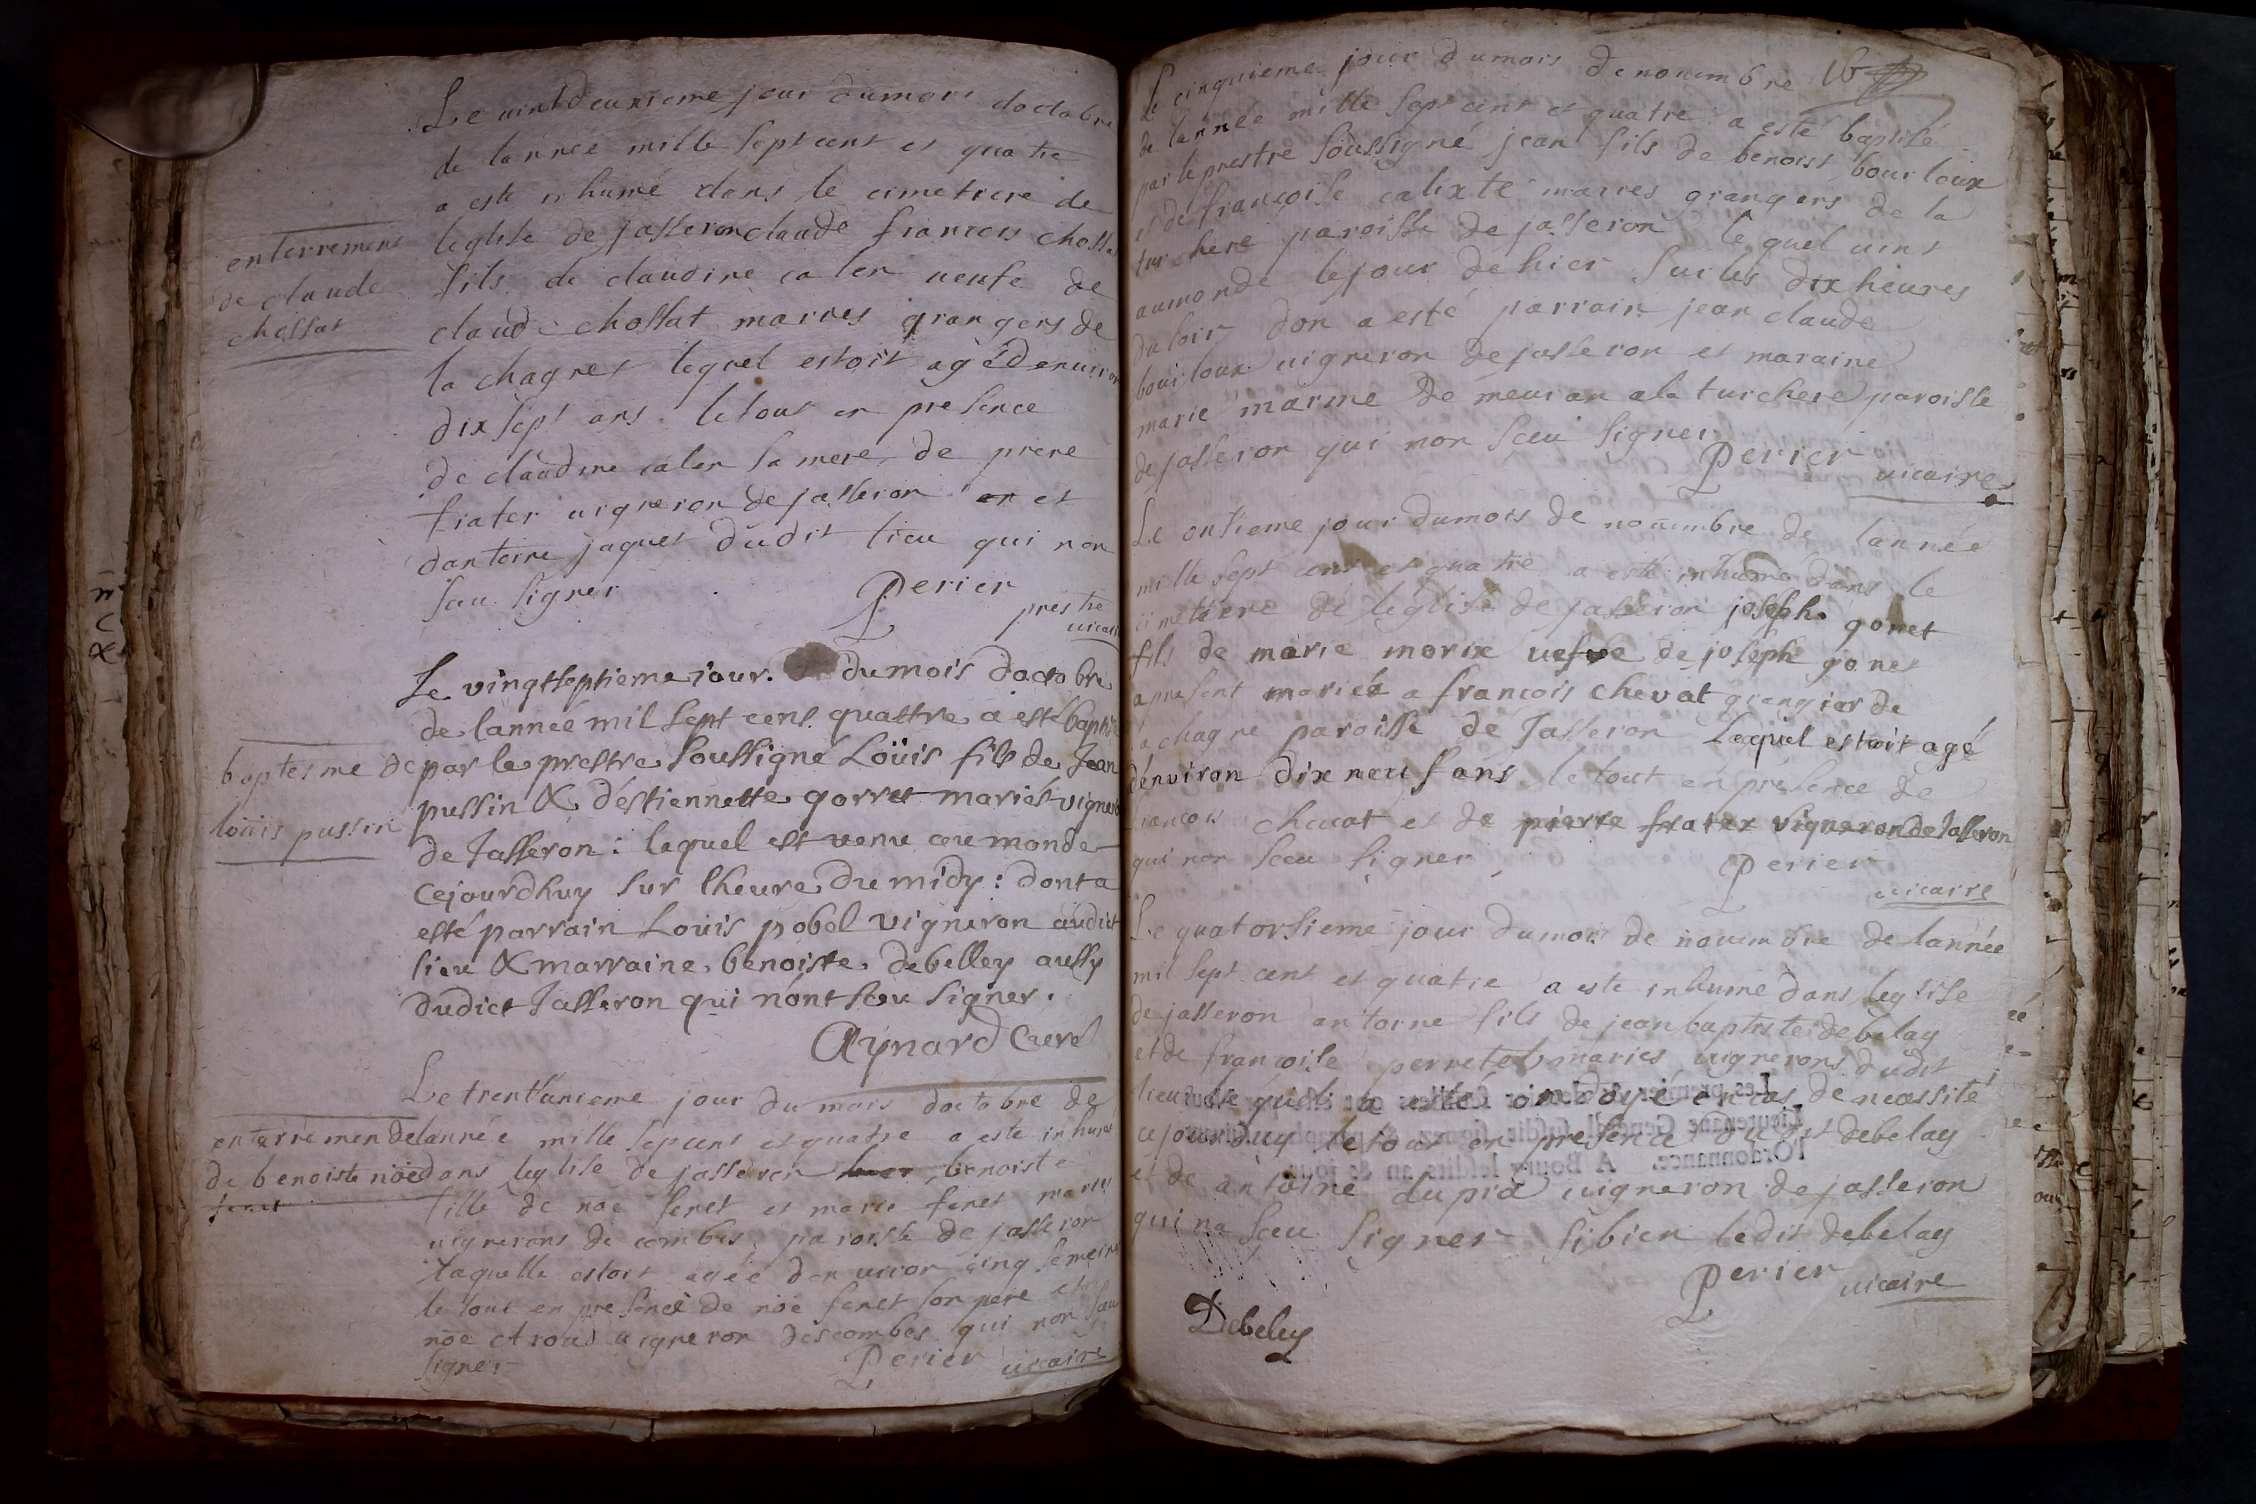 Le vint deuxieme jour du mois doctobre
de lannée mille sept cent et quatre
a esté inhumé dans le cimetiere de
enterrement
de claude
chossat
leglise de jasseron claude francois chossat
fils de claudine caler veufe de
claude chossat maries grangers de
la chagnes lequel estoit agé denviron
dix sept ans. le tout en presence
de claudine caler sa mere, de piere
frater vigneron de jasseron et
dantoine jaquet dudit lieu qui non
sceu signer
Perier
prestre
vicaire
Le vingtseptieme jour du mois doctobre
de lannée mil sept cens quattre a esté baptisé
baptesme de
louis pussin
par le prestre soussigné Loüis fils de Jean
pussin & d'estiennette gorret mariés vignerons
de Jasseron : lequel est venu au monde
cejourdhuy sur lheure du midy : dont a
esté parrain Louis pobel vigneron audict
lieu & marraine benoiste debelley aussy
dudict Jasseron qui nont sceu signer.
Aynard Curé
Le trentunieme jour du mois doctobre de
enterremen
de benoiste nöe
feret
lannée mille sep cens et quatre a este inhumé
dans leglise de jasseron benoiste
fille de noe feret et marie feret maries
vignerons de combes paroisse de jasseron
laquelle estoit agée denviron cinq semaines
le tout en presence de nöe feret son pere et
noe vigneron des combes qui non sceu
signer
Perier vicaire
Le cinquieme jour du mois de novembre
de lannée mille sept cent et quatre a esté baptisé
par le prestre soussigné jean fils de benoist bourloux
et de françoise calixte maries grangers de la
turchere paroisse de jasseron lequel vint
au monde le jour dehier sur les dix heures
du soir don a esté parrain jean claude
bourloux vigneron de jasseron et maraine
marie marme de meurian a la turchere paroisse
de jasseron qui non sceu signer
Perier
vicaire
Le onsieme jour du mois de novembre de lannée
mille sept cent et quatre a esté inhumé dans le
cimetiere de leglise de jasseron joseph gonet
fils de marie morix vefve de joseph gonet
a present mariée a francois chevat grangier de
la chagne paroisse de Jasseron Lequel estoit agé
denviron dix neuf ans le tout en presence de
francois chevat et de pierre frater vigneron de Jasseron
qui non sceu signer
Perier
vicaire
Le quatorsieme jour du mois de novembre de lannée
mil sept cent et quatre a este inhumé dans leglise
de jasseron antoine fils de jean baptiste debelay
et de françoise perretel maries vignerons dudit
lieu qui a esté ondoyé en cas de necessité
ce jourduy le tout en presence dudit debelay
et de antoine dupra vigneron de jasseron
qui na sceu signer si bien ledit debelay
Perier
vicaire
Debeley